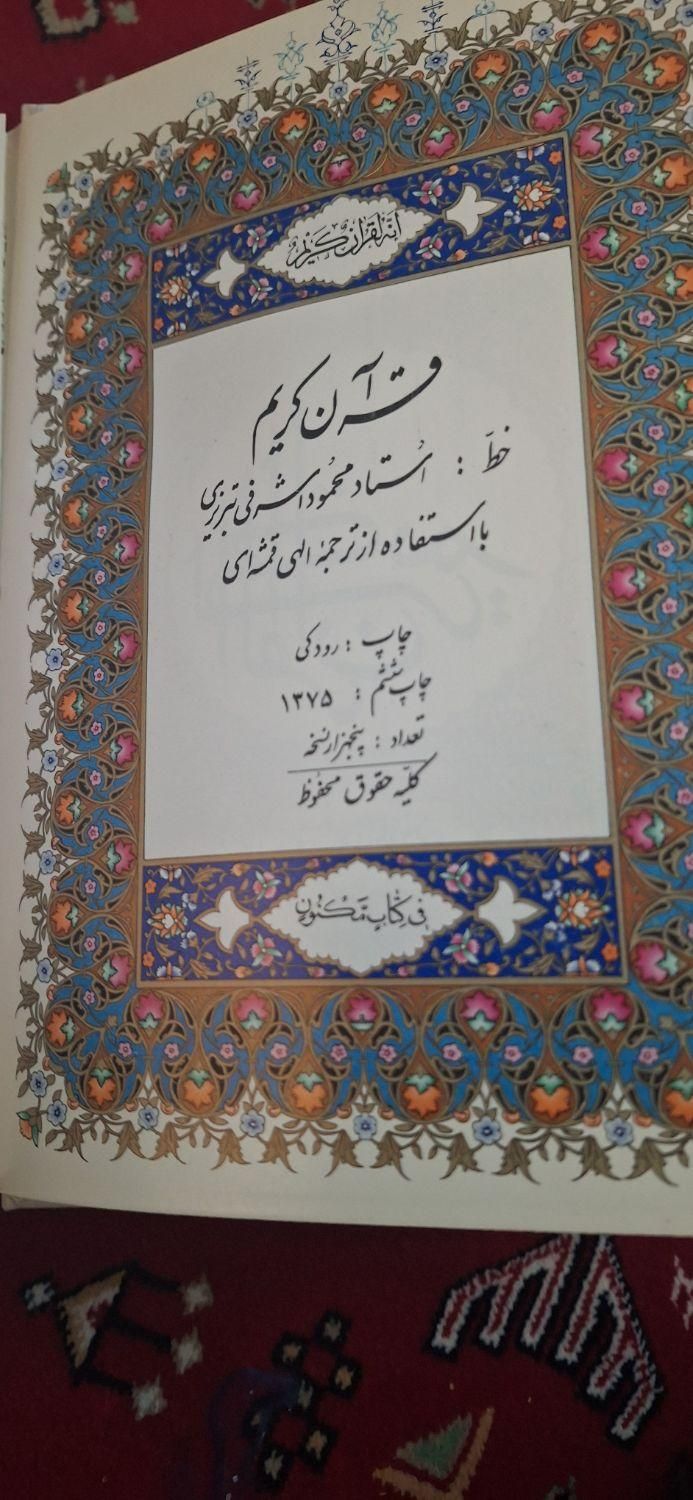 انه لقرآن کریم
قرآن کریم
خطّ : اُستاد محمُود اشرفی تبریزی
با استفاده از ترجمهٔ الهی قمشه‌ای
چاپ : رودکی
چاپ ششم : ۱۳۷۵
تعداد : پنجهزار نسخه
کلیّه حقوق محفوظ
فی کتاب مکنون